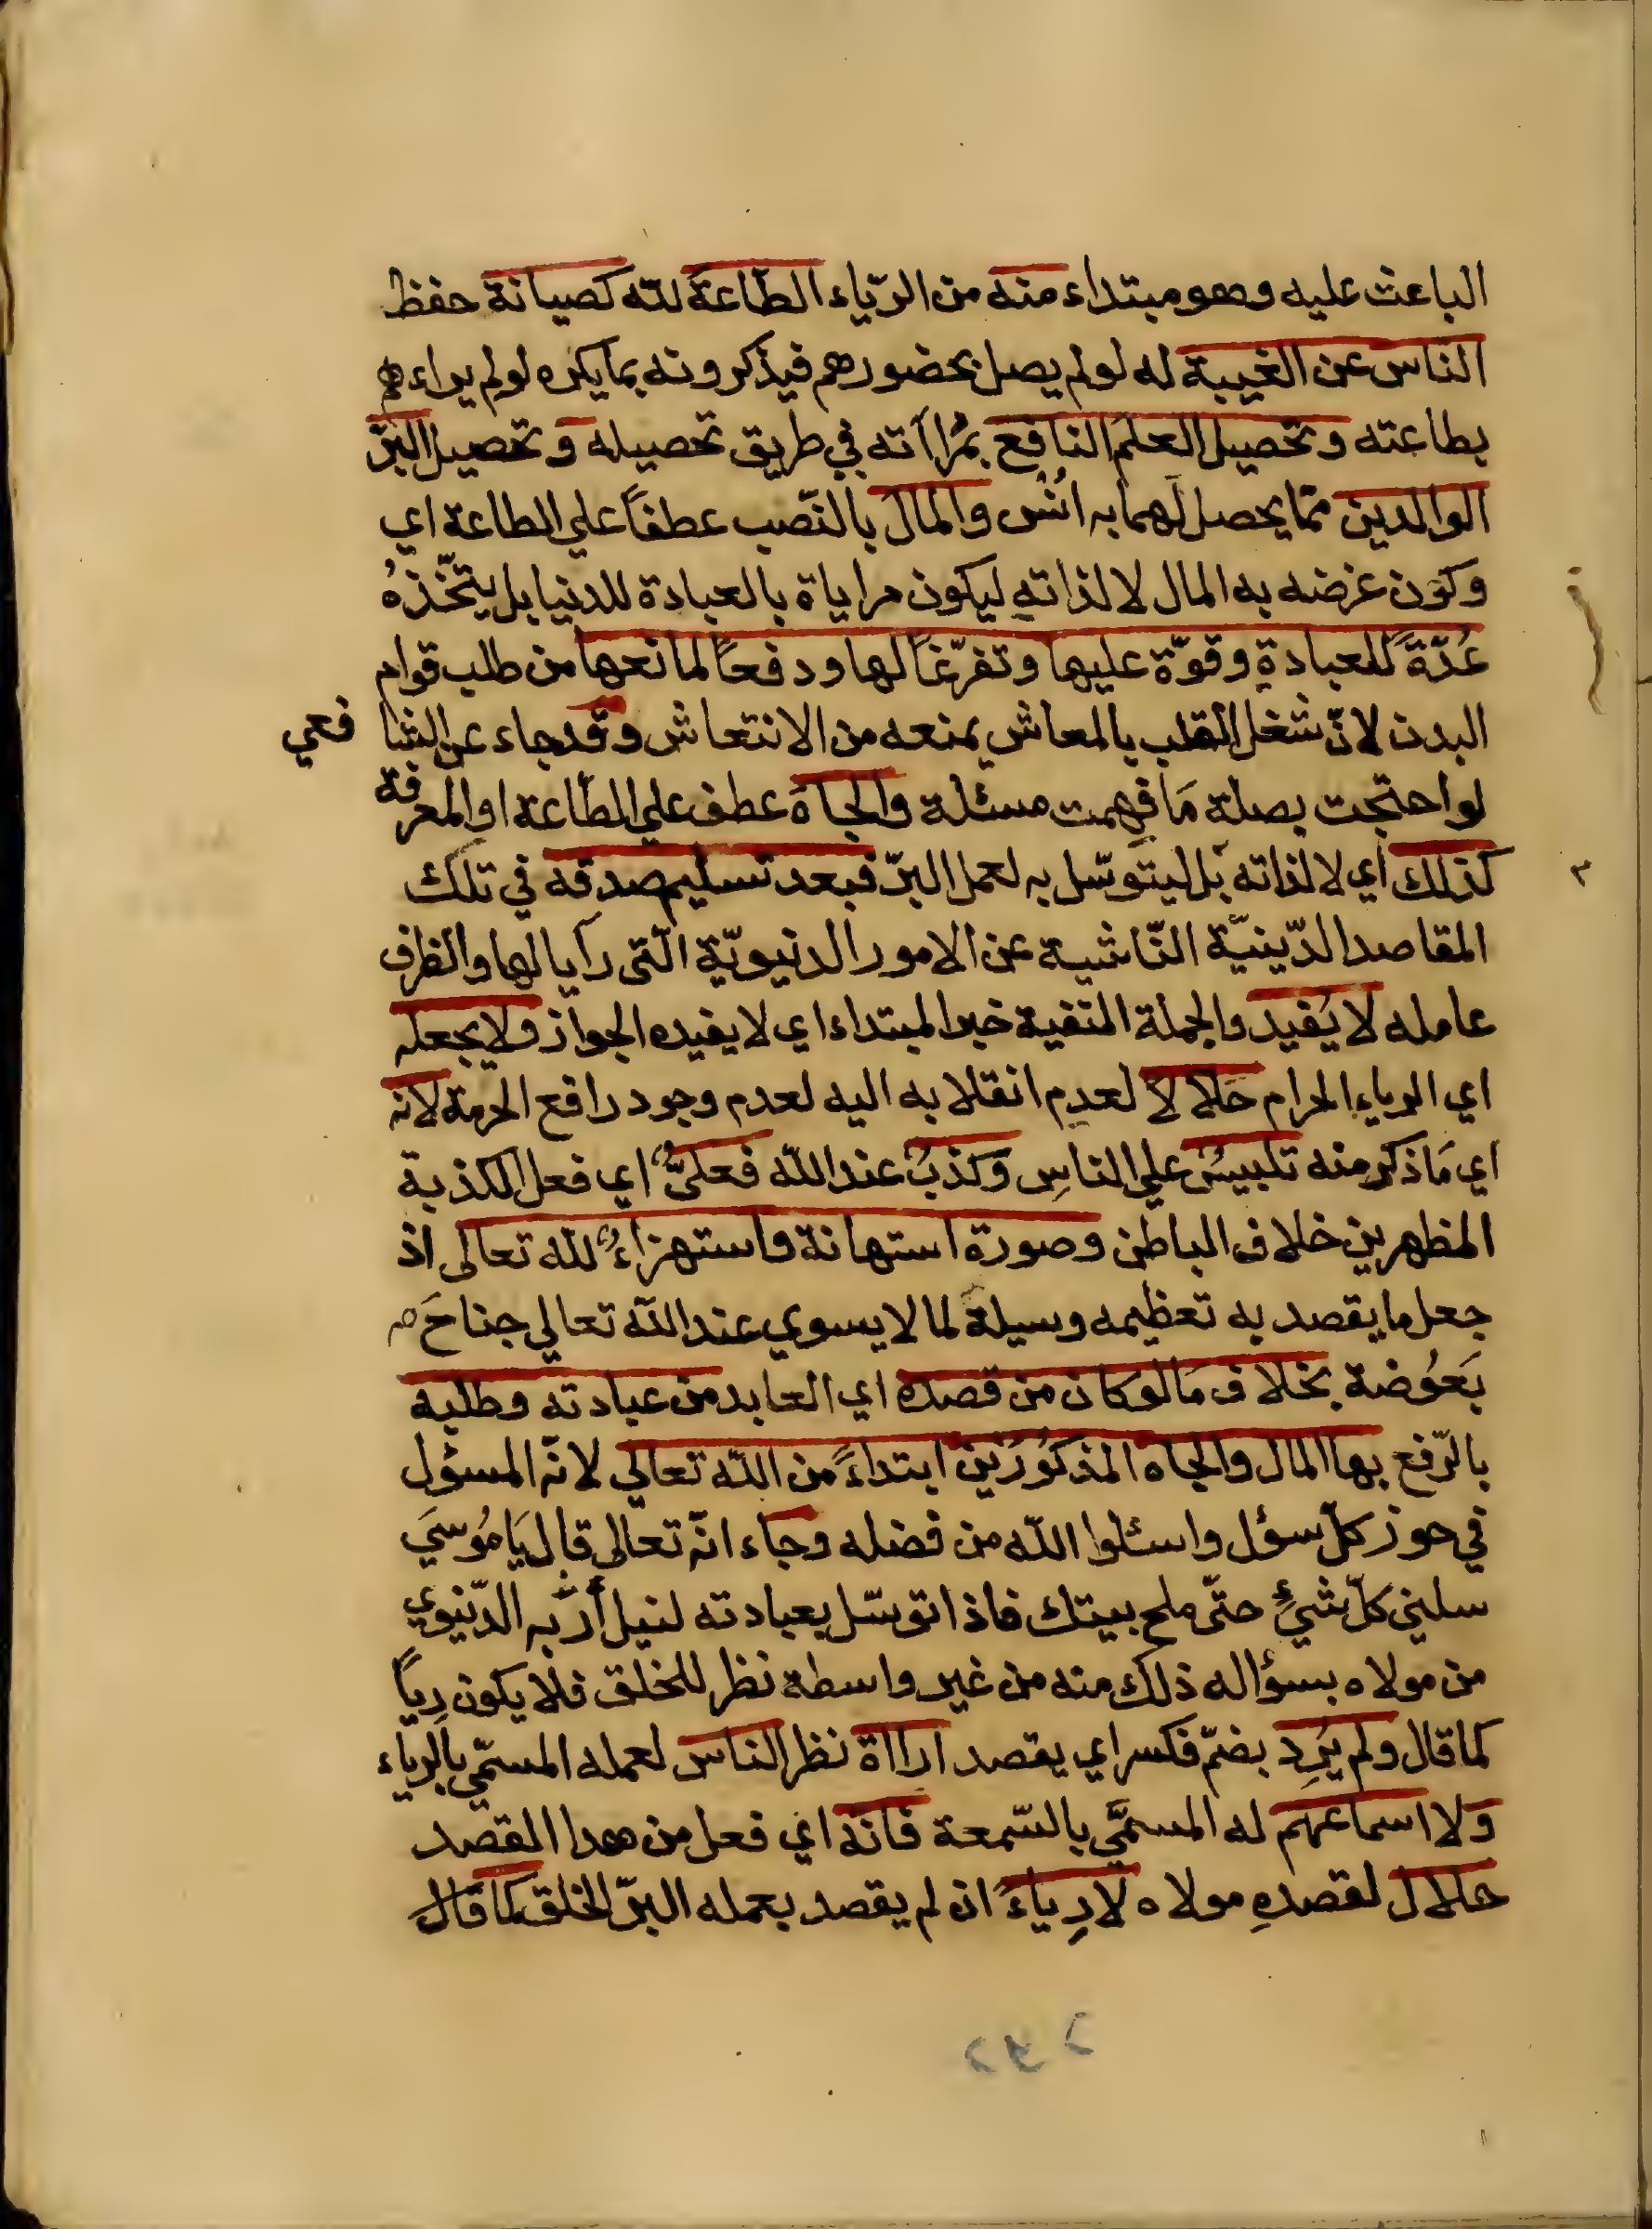 الباعث عليه وهو مبتداء منه من الرّياء الطّاعة لله كصيانة حفظ
الناس عن الغيبة له لو لم يصل بحضورهم فيذكرونه بما يكره لو لم يراءهم
بطاعته وتحصيل العلم النافع بمُراآته في طريق تحصيله وتحصيل البرّ
الوالدين ممّا يحصل لهما به انُسُ والمال بالنّصب عطفاً علي الطاعة اي
وكون غرضه به المال لا لذاته ليكون مراياة بالعبادة للدنيا بل يتّخذهُ
عُدّةً للعبادةِ وقوّة عليها وتفرّغاً لها ودفعاً لمانعها من طلب قوام
البدن لانّ شغل القلب بالمعاش يمنعه من الانتعاش وقد جاء عن الشا فعي
لو احتجت بصلة مَا فهمت مسئلة والجاه عطف علي الطّاعة او المعرفة
كذلك اي لا لذاته بل ليتوسّل به لعمل البرّ فبعد تسليم صدقه في تلك
المقاصد الدّينيّة النّاشية عن الامور الدنيويّة الّتى رآيا لها والظرف
عامله لا يُفيد والجملة المنفية خبر المبتداء اي لا يفيده الجواز ولا يجعله
اي الرياء الحرام حَلالاً لعدم انقلابه اليه لعدم وجود رافع الحرمة لانه
اي مَا ذكر منه تلبيسُ علي الناسِ وكذبُ عند الله فعليُّ اي فعل الكذبة
المظهرين خلاف الباطن وصورة استهانة واستهزاءُ لله تعالى اذ
جعل ما يقصد به تعظيمه وسيلة لما لا يسوي عند الله تعالي جناحَ
بَعُوضة بخلاف مَا لو كان من قصده اي العابد من عبادته وطلبه
بالرّفع بها المال والجاه المذكوُرَين ابتداءً من الله تعالي لانّه المسؤل
في حوز كلّ سؤل واسئلوا الله من فضله وجاء انّه تعالى قال يَا مُوسَي
سلني كلّ شئٍ حتّى ملح بيتك فاذا توسّل بعبادته لنيل أرَبه الدّنيوي
من مولاه بسؤاله ذلك منه من غير واسطة نظر للخلق فلا يكون رِياً
كما قال ولم يُرِد بضمّ فكسر اي يقصد اراأة نظر الناس لعمله المسمّي بالرياء
ولا اسماعهم له المسمَّي بالسّمعة فانّه اي فعل من هدا المقصد
حلال لقصدهِ مولاه لا رِياءً ان لم يقصد بعمله البرّ الخلق كما قال